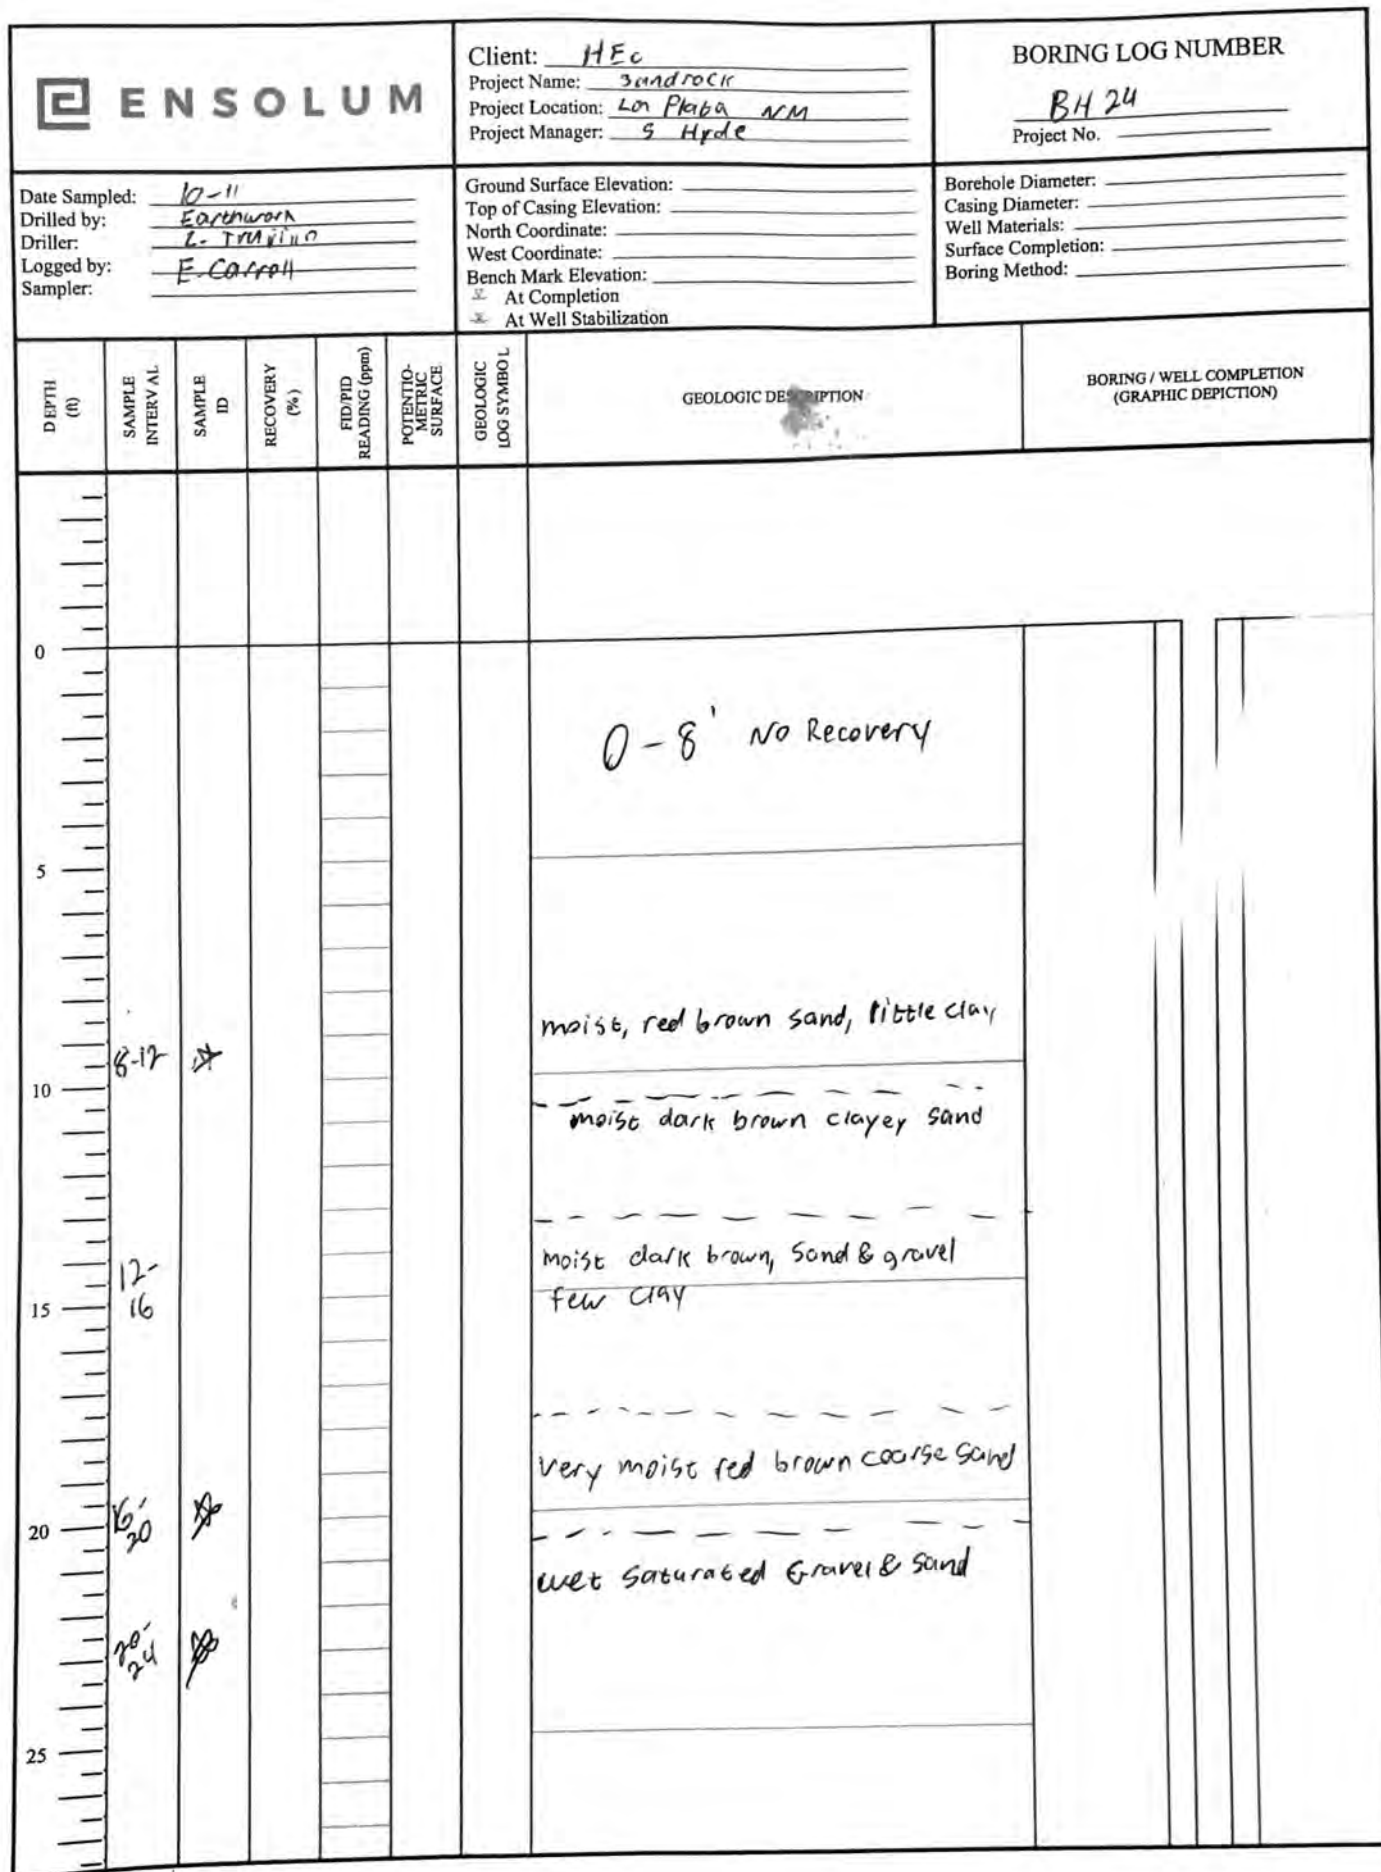 ENSOLUM
Client: HEC
Project Name: Sandrock
Project Location: La Plata NM
Project Manager: S Hyde
BORING LOG NUMBER
BH 24
Project No.
Date Sampled: 10-11
Drilled by: Earthworx
Driller: L. Trujillo
Logged by: E. Carroll
Sampler:
Ground Surface Elevation:
Top of Casing Elevation:
North Coordinate:
West Coordinate:
Bench Mark Elevation:
At Completion
At Well Stabilization
Borehole Diameter:
Casing Diameter:
Well Materials:
Surface Completion:
Boring Method:
DEPTH
(ft)
SAMPLE
INTERVAL
SAMPLE
ID
RECOVERY
(%)
FID/PID
READING (ppm)
POTENTIO-
METRIC
SURFACE
GEOLOGIC
LOG SYMBOL
GEOLOGIC DESCRIPTION
BORING / WELL COMPLETION
(GRAPHIC DEPICTION)
0
0-8' No Recovery
5
moist, red brown sand, little clay
8-12
10
moist dark brown clayey sand
moist dark brown, sand & gravel
12-
few clay
15
16
very moist red brown coarse sand
16-
20
20
wet saturated Gravel & sand
20-
24
25